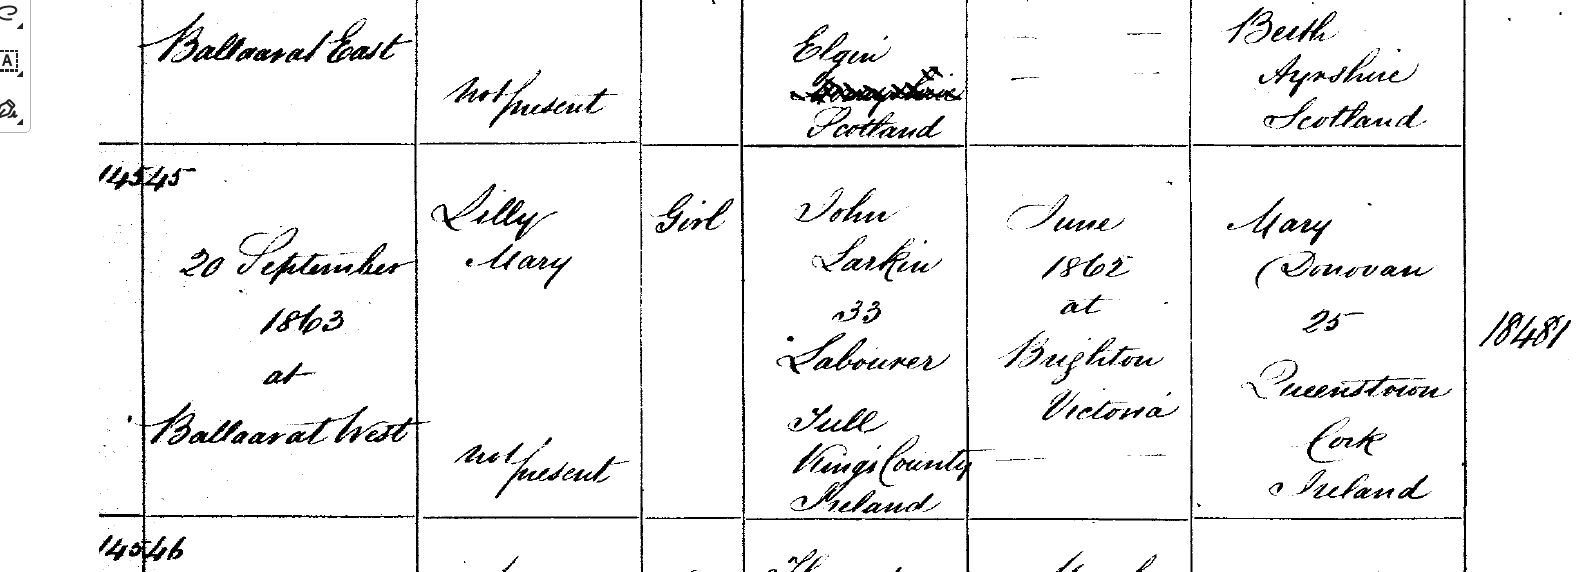 Ballaarat East
not present
Elgin
Scotland
Beith
Ayrshire
Scotland
14545
20 September
1863
at
Ballaarat West
Lilly
Mary
not present
Girl
John
Larkin
33
Labourer
Tull
Kings County
Ireland
June
1862
at
Brighton
Victoria
Mary
Donovan
25
Queenstown
Cork
Ireland
18481
14546